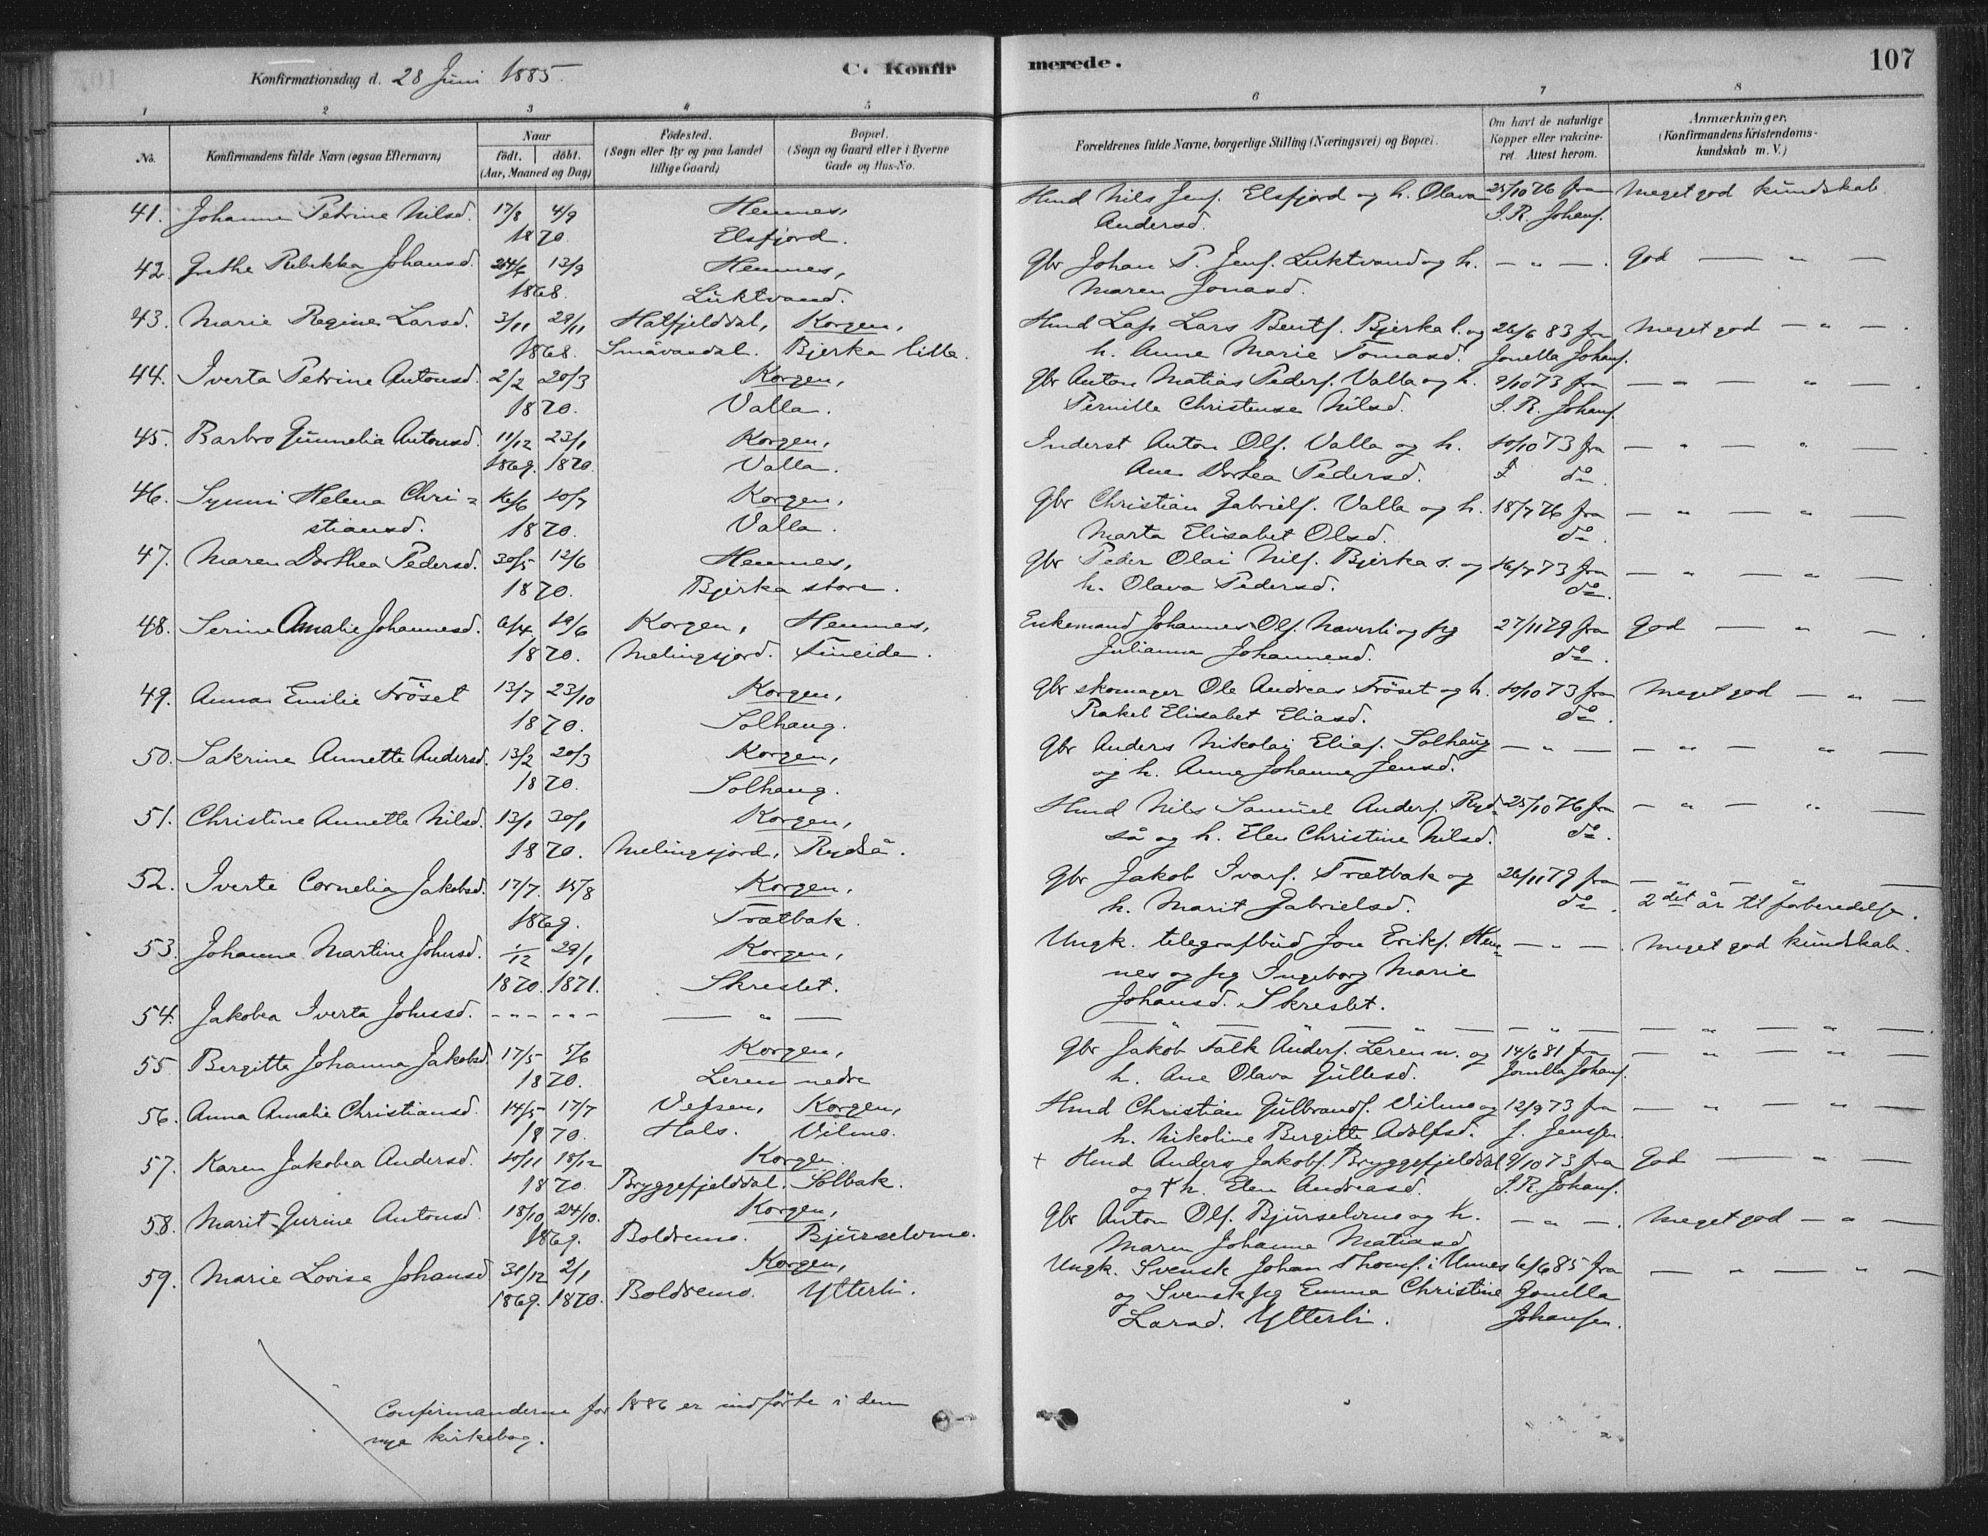 Konfirmationsdag d. 28 Juni 1885.
C. Konfirmerede.
107
1 2 3 4 5 6 7 8
No.
Konfirmandens fulde Navn (ogsaa Efternavn)
Naar
födt. döbt.
(Aar, Maaned og Dag)
Födested.
(Sogn eller By og paa Landet
tillige Gaard)
Bopæl.
(Sogn og Gaard eller i Byerne
Gade og Hus-No.
Forældrenes fulde Navne, borgerlige Stilling (Næringsvei) og Bopæl.
Om havt de naturlige
Kopper eller vakcine-
ret. Attest herom.
Anmærkninger.
(Konfirmandens Kristendoms-
kundskab m. V.)
41. Johanna Petrine Nilsd. 17/8 4/9 Hemnes, Hmd Nils Jens. Elsfjord og h. Olava 25/10 76 fra Meget god kundskab.
1870. Elsfjord. Andersd. I. R. Johans.
42. Grethe Rebekka Johansd. 24/6 13/9 Hemnes, Gbr Johan P. Jens. Luktvand og h. — " — God — " —
1868. Luktvand. Maren Jonasd.
43. Marie Regine Larsd. 3/11 29/11 Hatfjelddal, Korgen, Hmd Lap Lars Bents. Bjerka l. og 26/6 83 fra Meget god — " —
1868. Småvasdal. Bjerka lille. h. Anne Marie Tomasd. Jonella Johans.
44. Iverta Petrine Antonsd. 2/2 20/3 Korgen, Gbr Anton Matias Peders. Valla og h. 9/10 73 fra — " — " —
1870. Valla. Pernille Christense Nilsd. I. R. Johans.
45. Barbro Gunnelia Antonsd. 11/12 23/1 Korgen, Inderst Anton Ols. Valla og h. 10/10 73 fra — " — " —
1869. 1870. Valla. Ane Dortea Pedersd. do.
46. Synni Helena Chri- 16/6 10/7 Korgen, Gbr Christian Gabriels. Valla og h. 18/7 76 fra — " — " —
stiansd. 1870. Valla. Marta Elisabet Olsd. do.
47. Maren Dorthea Pedersd. 30/5 12/6 Hemnes, Gbr Peder Olai Nils. Bjerka s. og 16/7 73 fra — " — " —
1870. Bjerka store. h. Olava Pedersd. do.
48. Serine Amalie Johannesd. 6/4 19/6 Korgen, Hemnes, Enkemand Johannes Ols. Naverli og pg 27/11 79 fra God — " —
1870. Melingsjord. Fineide. Julianna Johannesd. do.
49. Anna Emilie Fröset 13/7 23/10 Korgen, Gbr skomager Ole Andreas Fröset og h. 10/10 73 fra Meget god — " —
1870. Solhaug. Rakel Elisabet Eliasd. do.
50. Sakrine Annette Andersd. 13/2 20/3 Korgen, Gbr Anders Nikolai Elias. Solhaug — " — — " — " —
1870. Solhaug. og h. Anne Johanna Jensd.
51. Christine Annette Nilsd. 13/1 30/1 Korgen, Hmd Nils Samuel Anders. Ryd- 25/10 76 fra — " — " —
1870. Melingsjord. Rydså. så og h. Elen Christine Nilsd. do.
52. Iverte Cornelia Jakobsd. 17/7 15/8 Korgen, Gbr Jakob Ivars. Trætbak og 26/11 79 fra — " — " —
1869. Trætbak. h. Marit Gabrielsd. do. 2det år til forberedelse.
53. Johanna Martine Johnsd. 1/12 29/1 Korgen, Ungk. telegrafbud Jon Eriks. Hem- — " — Meget god kundskab.
1870. 1871. Skreslet. nes og pg Ingeborg Marie
Johansd. Skreslet.
54. Jakobea Iverta Johnsd. - - - - - - — " — — " — " — — " — — " — " —
55. Bergitte Johanna Jakobsd. 17/5 5/6 Korgen, Gbr Jakob Falk Anders. Leren n. og 14/6 81 fra — " — " —
1870. Leren nedre h. Ane Olava Gullesd. Jonella Johans.
56. Anna Amalie Christiansd. 14/5 17/7 Vefsen, Korgen, Hmd Christian Gulbrands. Vilmo og 12/9 73 fra — " — " —
1870. Hals. Vilmo. h. Nikoline Bergitte Adolfsd. J. Jenssen.
57. Karen Jakobea Andersd. 10/11 18/12 Korgen. + Hmd Anders Jakobs. Bryggefjelddal 9/10 73 fra God — " —
1870. Bryggefjelddal. Solbak. og + h. Elen Andreasd. I. R. Johans.
58. Marit Gurine Antonsd. 18/10 24/10. Korgen, Gbr Anton Ols. Bjurselvmo og h. — " — Meget god — " —
1869. Boldremo. Bjurselvmo. Maren Johanna Matiasd
59. Marie Lovise Johansd 31/12 2/1 Korgen, Ungk. Svensk Johan Thoms. i Umnes 6/6 85 fra — " — " —
1869. 1870. Boldremo. Ytterli. og Svensk pg Emma Christine Jonella
Larsd. Ytterli. Johansen.
Confirmanderne for 1886 er indförte i den
nye kirkebog.